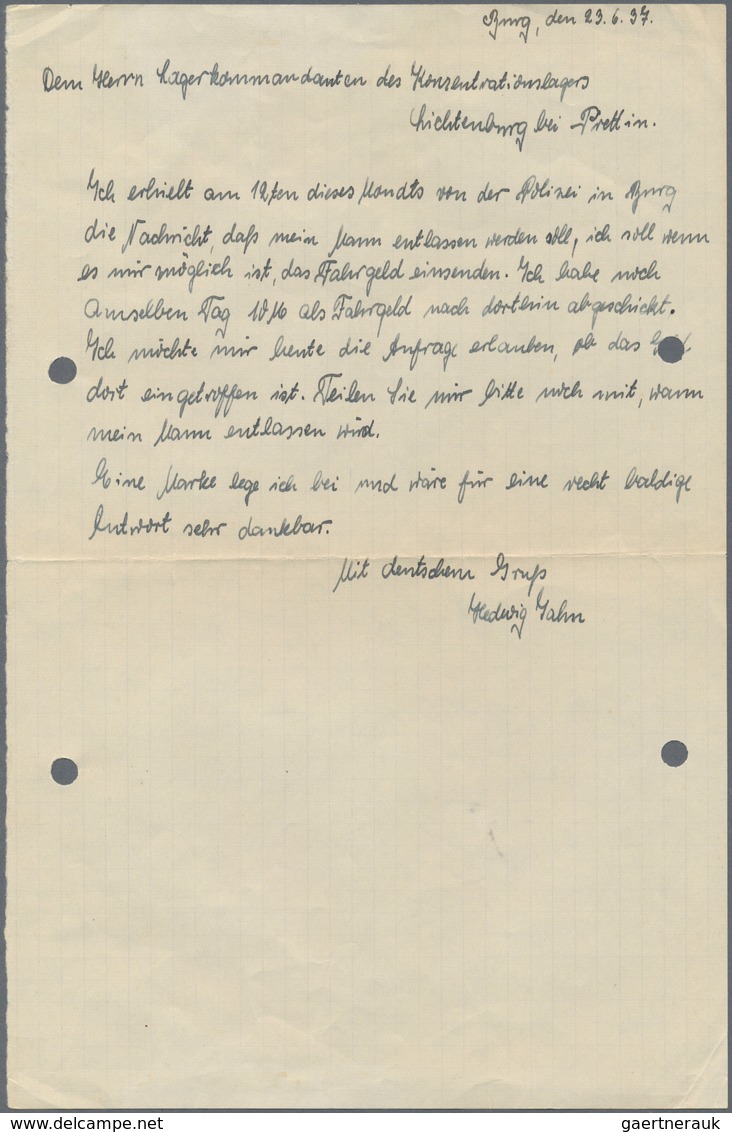 Burg, den 23.6.37.
Dem Herrn Lagerkommandanten des Konzentrationslagers
Lichtenburg bei Prettin.
Ich erhielt am 12ten dieses Monats von der Polizei in Burg
die Nachricht, daß mein Mann entlassen werden soll, ich soll wenn
es mir möglich ist, das Fahrgeld einsenden. Ich habe noch
amselben Tag 10 M als Fahrgeld nach dorthin abgeschickt.
Ich möchte mir heute die Anfrage erlauben, ob das
dort eingetroffen ist. Teilen Sie mir bitte noch mit, wann
mein Mann entlassen wird.
Eine Marke lege ich bei und wäre für eine recht baldige
Antwort sehr dankbar.
Mit deutschem Gruß
Hedwig Jahn
gaertnerauk